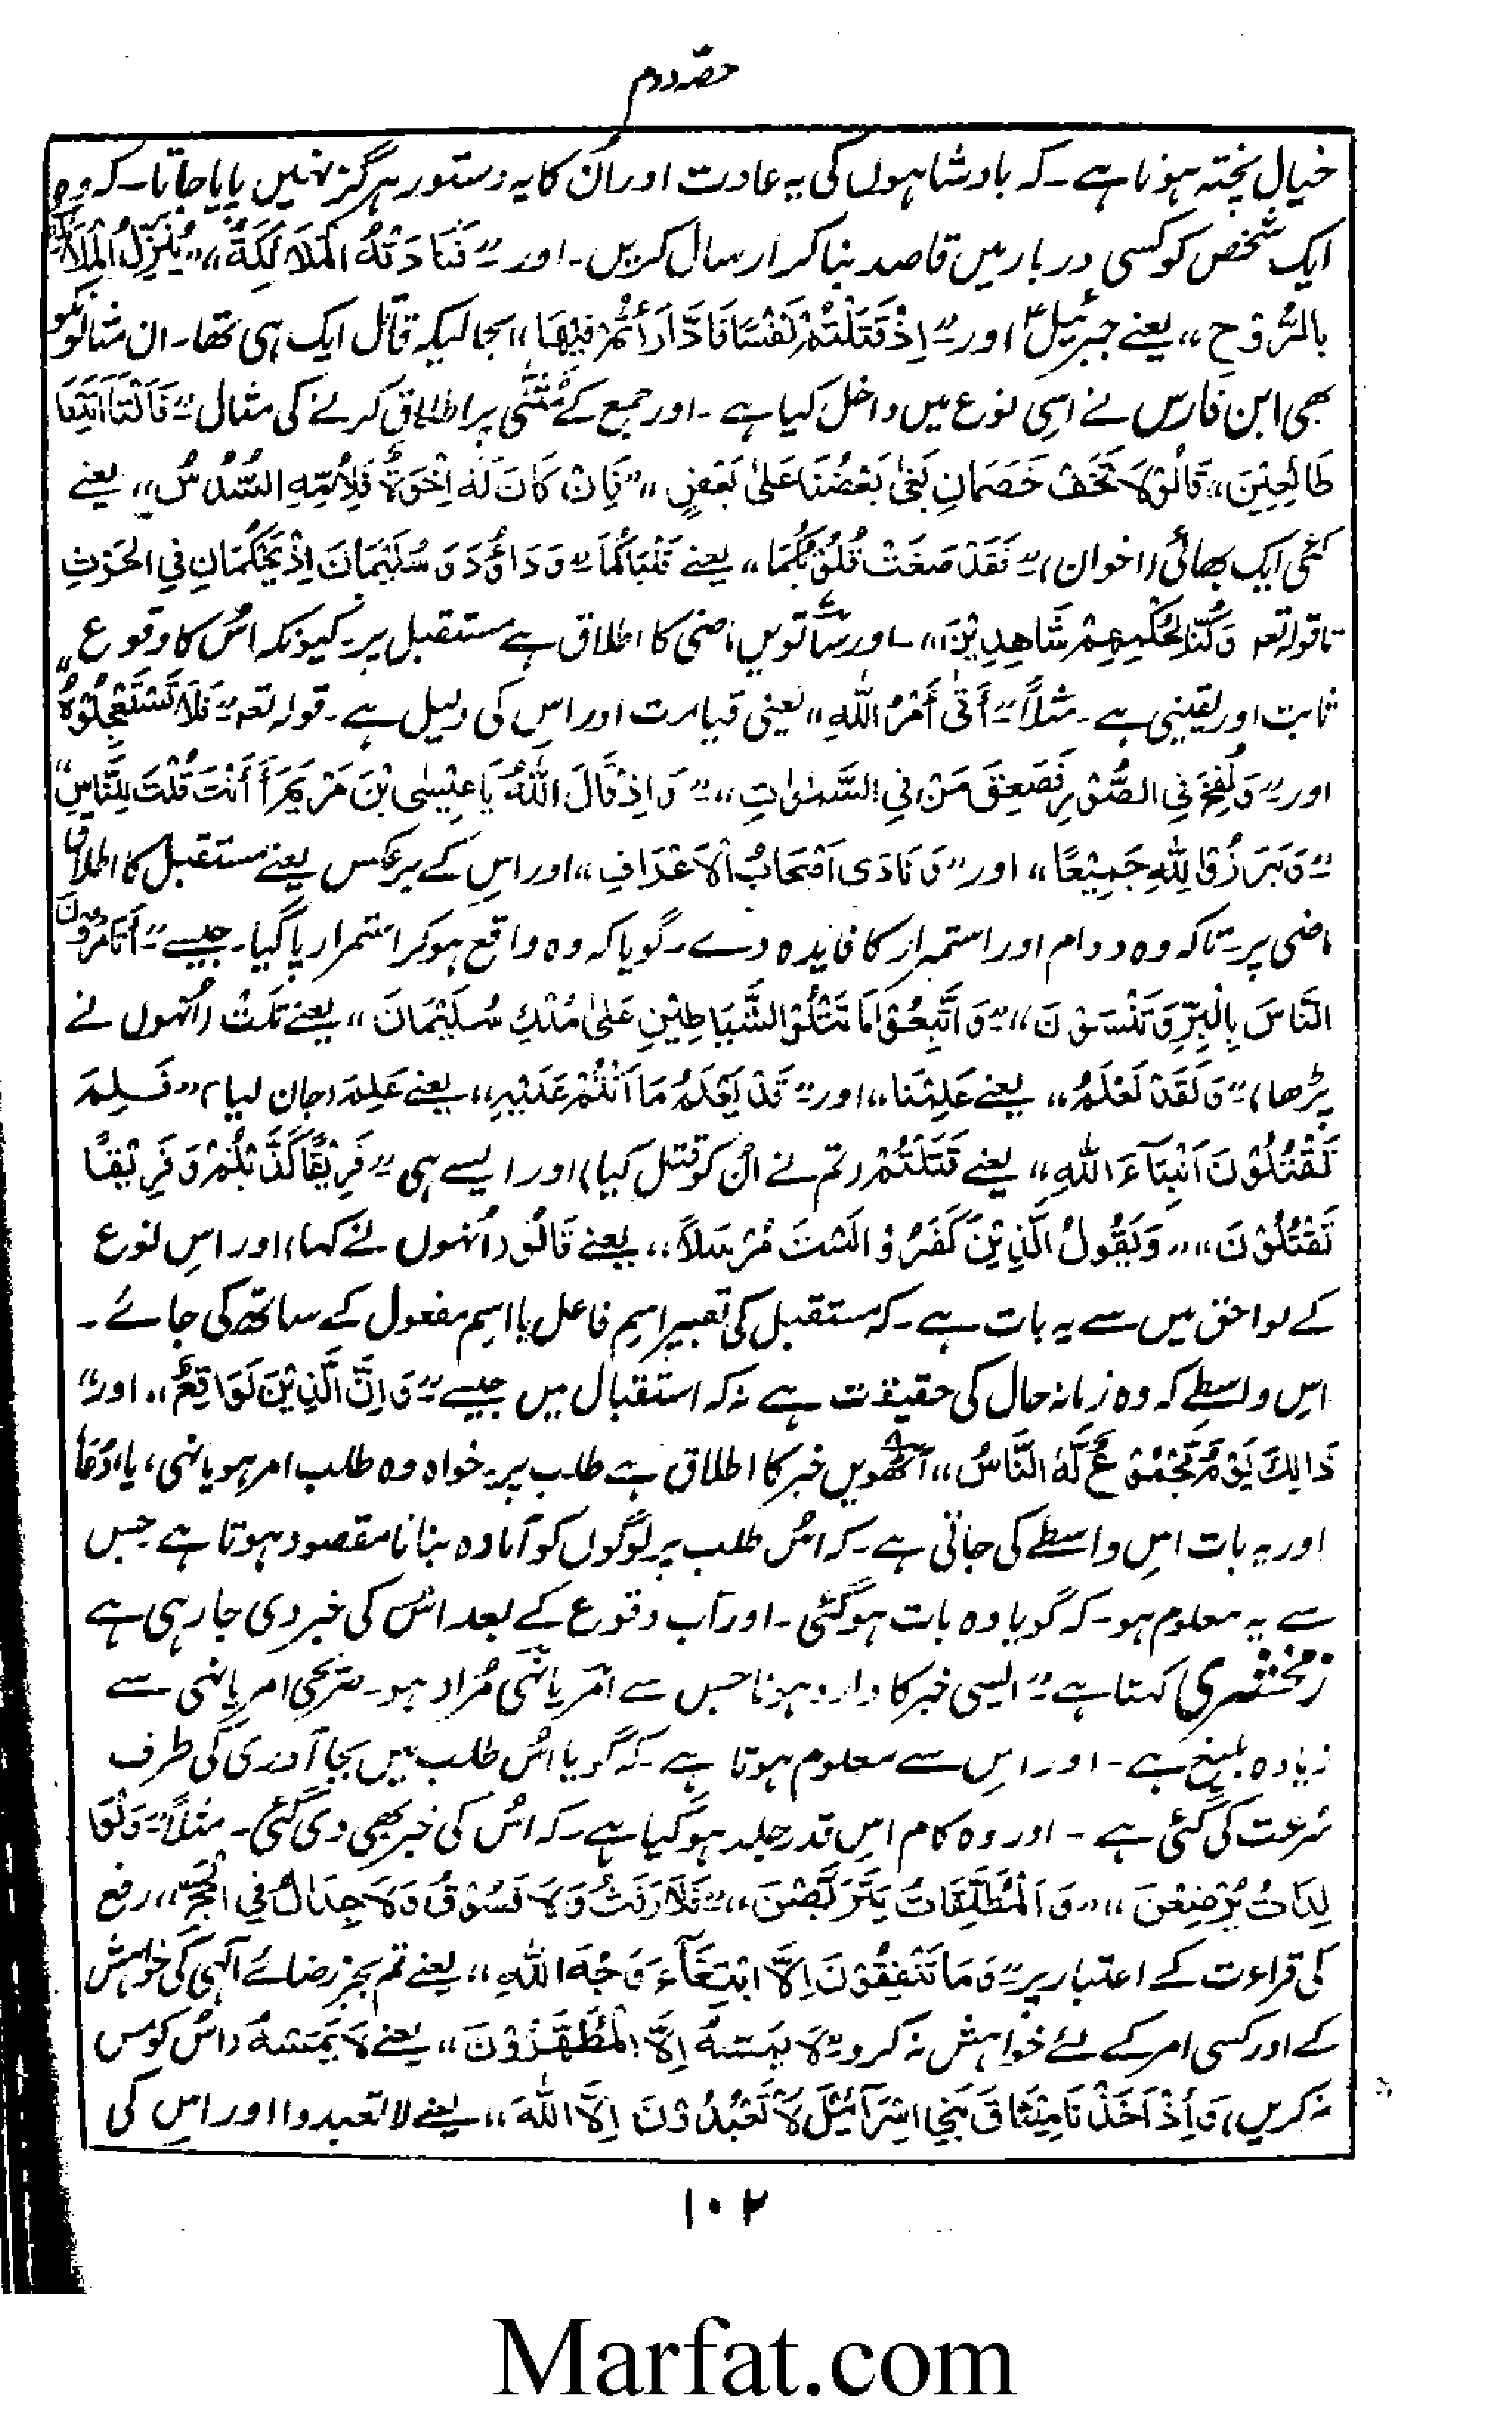 حصہ دوم
خیال پختہ ہوتا ہے۔ کہ بادشاہوں کی یہ عادت اور ان کا یہ دستور ہرگز نہیں پایا جاتا۔ کہ وہ
ایک شخص کو کسی دربار میں قاصد بنا کر ارسال کریں۔ اور "فَنَادَتْهُ الْمَلَائِكَةُ" "يُنَزِّلُ الْمَلَائِكَةَ
بِالرُّوْحِ" یعنے جبرئیلؑ اور "اِذْ قَتَلْتُمْ نَفْسًا فَادَّارَأْتُمْ فِيْهَا" بحالیکہ قاتل ایک ہی تھا۔ ان مثالونکو
بھی ابن فارس نے اسی نوع میں داخل کیا ہے۔ اور جمع کے مُثَنّٰی پر اطلاق کرنے کی مثال "قَالَتَا اَتَيْنَا
طَائِعِيْنَ" "قَالُوْا لَا تَخَفْ خَصْمَانِ بَغٰى بَعْضُنَا عَلٰى بَعْضٍ" "فَاِنْ كَانَ لَهٗ اِخْوَةٌ فَلِاُمِّهِ السُّدُسُ" یعنے
کئی ایک بھائی (اخوان) "فَقَدْ صَغَتْ قُلُوْبُكُمَا" یعنے قَلْبَاكُمَا "وَدَاوٗدَ وَسُلَيْمَانَ اِذْ يَحْكُمَانِ فِي الْحَرْثِ
تا قولہ تعہ وَكُنَّا لِحُكْمِهِمْ شَاهِدِيْنَ" ۔ اور ساتویں ماضی کا اطلاق ہے مستقبل پر۔ کیونکہ اُس کا وقوع
ثابت اور یقینی ہے۔ مثلاً "أَتٰى أَمْرُ اللهِ" یعنی قیامت اور اس کی دلیل ہے۔ قولہ تعہ "فَلَا تَسْتَعْجِلُوْهُ"
اور "وَنُفِخَ فِي الصُّوْرِ فَصَعِقَ مَنْ فِي السَّمٰوٰتِ" "وَاِذْ قَالَ اللهُ يَا عِيْسٰى بْنَ مَرْيَمَ أَأَنْتَ قُلْتَ لِلنَّاسِ"
"وَبَرَزُوْا لِلّٰهِ جَمِيْعًا" اور "وَنَادٰى اَصْحَابُ الْاَعْرَافِ" اور اس کے برعکس یعنے مستقبل کا اطلاق
ماضی پر۔ تاکہ وہ دوام اور استمرار کا فایدہ دے۔ گویا کہ وہ واقع ہوکر استمرار پا گیا۔ جیسے "اَتَأْمُرُوْنَ
النَّاسَ بِالْبِرِّ وَتَنْسَوْنَ" "وَاتَّبَعُوْا مَا تَتْلُوا الشَّيَاطِيْنِ عَلٰى مُلْكِ سُلَيْمَانَ" یعنے تَلَتْ (اُنہوں نے
پڑھا) "وَلَقَدْ نَعْلَمُ" یعنے عَلِمْنَا" اور "قَدْ يَعْلَمُ مَا اَنْتُمْ عَلَيْهِ" یعنے عَلِمَ (جان لیا) "فَلِمَ
تَقْتُلُوْنَ اَنْبِيَآءَ اللهِ" یعنے قَتَلْتُمْ (تم نے اُن کو قتل کیا) اور ایسے ہی "فَرِيْقًا كَذَّبْتُمْ وَفَرِيْقًا
تَقْتُلُوْنَ" "وَيَقُولُ الَّذِيْنَ كَفَرُوْا لَسْتَ مُرْسَلًا" یعنے قَالُوْا (اُنہوں نے کہا) اور اس نوع
کے لواحق میں سے یہ بات ہے۔ کہ مستقبل کی تعبیر اسم فاعل یا اسم مفعول کے ساتھ کی جائے۔
اس واسطے کہ وہ زمانہ حال کی حقیقت ہے نہ کہ استقبال میں جیسے "وَاِنَّ الَّذِيْنَ لَوَاقِعٌ" اور "
ذَالِكَ يَوْمٌ مَّجْمُوْعٌ لَّهُ النَّاسُ" آٹھویں خبر کا اطلاق ہے طلب پر۔ خواہ وہ طلب امر ہو یا نہی، یا، دُعَا
اور یہ بات اس واسطے کی جاتی ہے۔ کہ اُس طلب پر لوگوں کو آمادہ بنانا مقصود ہوتا ہے جس
سے یہ معلوم ہو۔ کہ گویا وہ بات ہوگئی۔ اور اب وقوع کے بعد اُس کی خبر دی جا رہی ہے
زمخشری کہتا ہے "ایسی خبر کا وارد ہونا جس سے اَمر یا نَہی مُراد ہو۔ صریحی امر یا نہی سے
زیادہ بلیغ ہے۔ اور اس سے معلوم ہوتا ہے۔ کہ گویا اُس طلب میں بجا آوری کی طرف
سُرعت کی گئی ہے۔ اور وہ کام اِس قدر جلد ہوگیا ہے۔ کہ اُس کی خبر بھی دی گئی۔ مثلاً "وَالْوَا
لِدَاتُ يُرْضِعْنَ" "وَالْمُطَلَّقَاتُ يَتَرَبَّصْنَ" "فَلَا رَفَثُ وَلَا فُسُوْقُ وَلَا جِدَالُ فِي الْحَجِّ" رفع
کی قراءت کے اعتبار پر "وَمَا تُنْفِقُوْنَ اِلَّا ابْتِغَآءَ وَجْهِ اللهِ" یعنے تم بجز رضائے الٰہی کی خواہش
کے اور کسی امر کے لئے خواہش نہ کرو "لَا يَمَسُّهُ اِلَّا الْمُطَهَّرُوْنَ" یعنے لَا يَمْسَسْهُ (اُس کو مس
نہ کریں) وَإِذْ اَخَذْنَا مِيْثَاقَ بَنِي اِسْرَآئِيْلَ لَا تَعْبُدُوْنَ اِلَّا اللهَ" یعنے لا تعبدوا اور اس کی
۱۰۲
Marfat.com